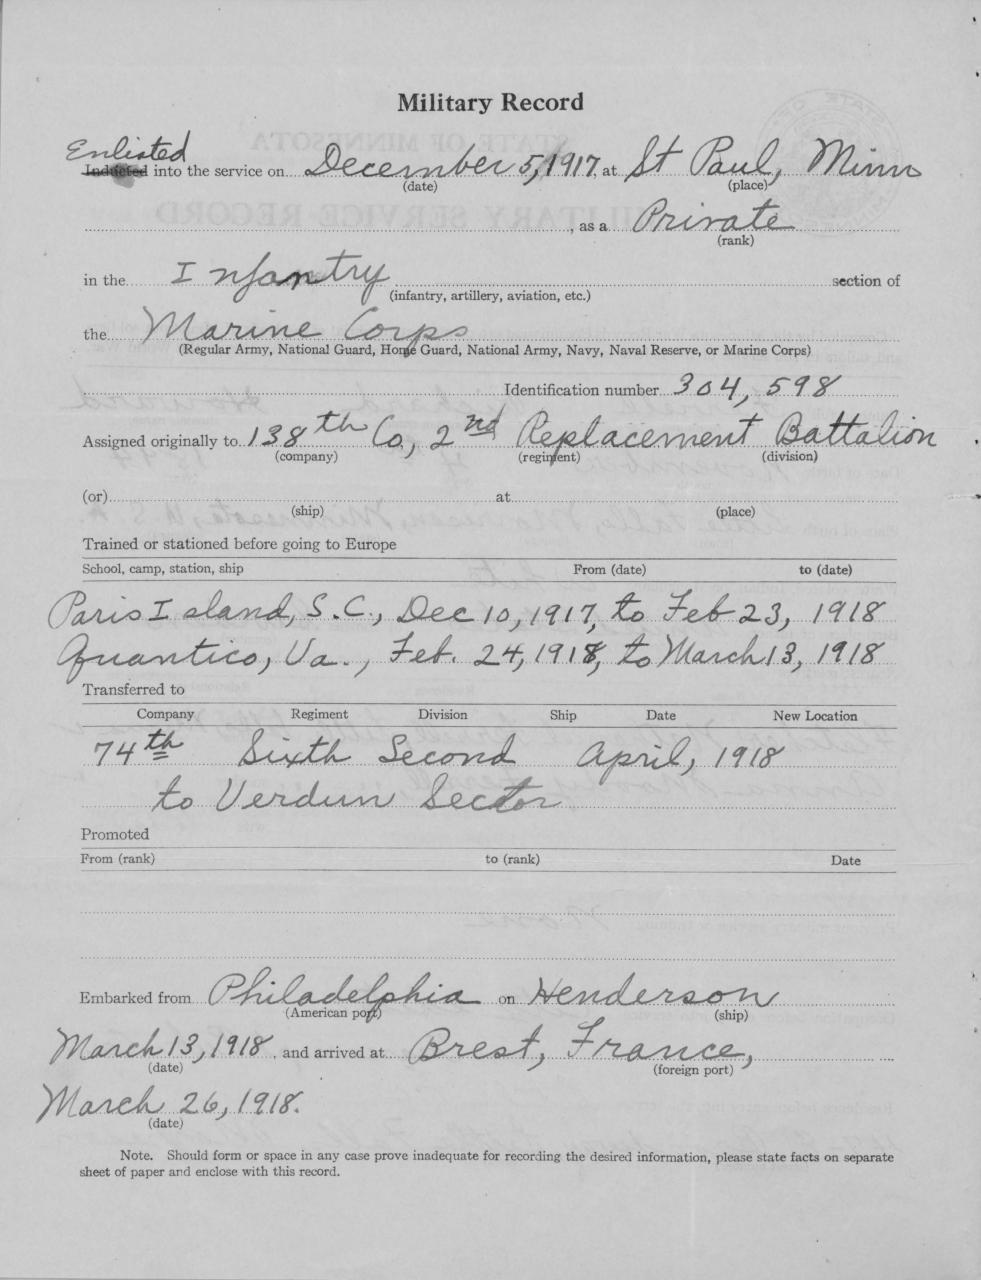 Military Record
Enlisted
Inducted into the service on December 5, 1917 at St Paul, Minn
(date) (place)
, as a Private
(rank)
in the Infantry section of
(infantry, artillery, aviation, etc.)
the Marine Corps
(Regular Army, National Guard, Home Guard, National Army, Navy, Naval Reserve, or Marine Corps)
Identification number 304,598
Assigned originally to 138th Co, 2nd Replacement Battalion
(company) (regiment) (division)
(or) at
(ship) (place)
Trained or stationed before going to Europe
School, camp, station, ship From (date) to (date)
Paris Island, S.C., Dec 10, 1917, to Feb 23, 1918
Quantico, Va., Feb. 24, 1918, to March 13, 1918
Transferred to
Company Regiment Division Ship Date New Location
74th Sixth Second April, 1918
to Verdun Sector
Promoted
From (rank) to (rank) Date
Embarked from Philadelphia on Henderson
(American port) (ship)
March 13, 1918, and arrived at Brest, France,
(date) (foreign port)
March 26, 1918.
(date)
Note. Should form or space in any case prove inadequate for recording the desired information, please state facts on separate
sheet of paper and enclose with this record.